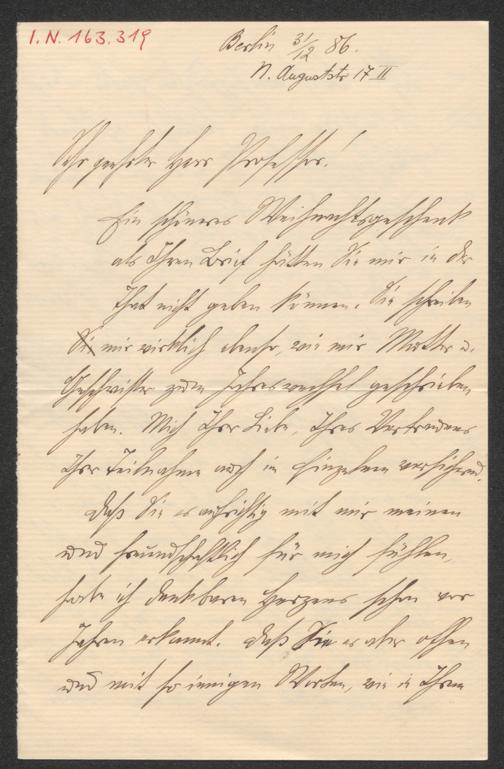 I.N. 163.319
Berlin 31/12 86.
N. Auguststr 17 II
Sehr geehrter Herr Professor!
Ein schöneres Weihnachtsgeschenk
als Ihren Brief hätten Sie mir in der
That nicht geben können. Sie schreiben
mir wirklich ebenso, wie mir Mutter u.
Geschwister zum Jahreswechsel geschrieben
haben. Mich Ihrer Liebe, Ihres Vertrauens
Ihrer Teilnahme noch im Einzelnen versichernd.
Daß Sie es aufrichtig mit mir meinen
und freundschaftlich für mich fühlen,
habe ich dankbaren Herzens schon vor
Jahren erkannt. Daß Sie es aber offen
und mit so innigen Worten, wie in Ihrem